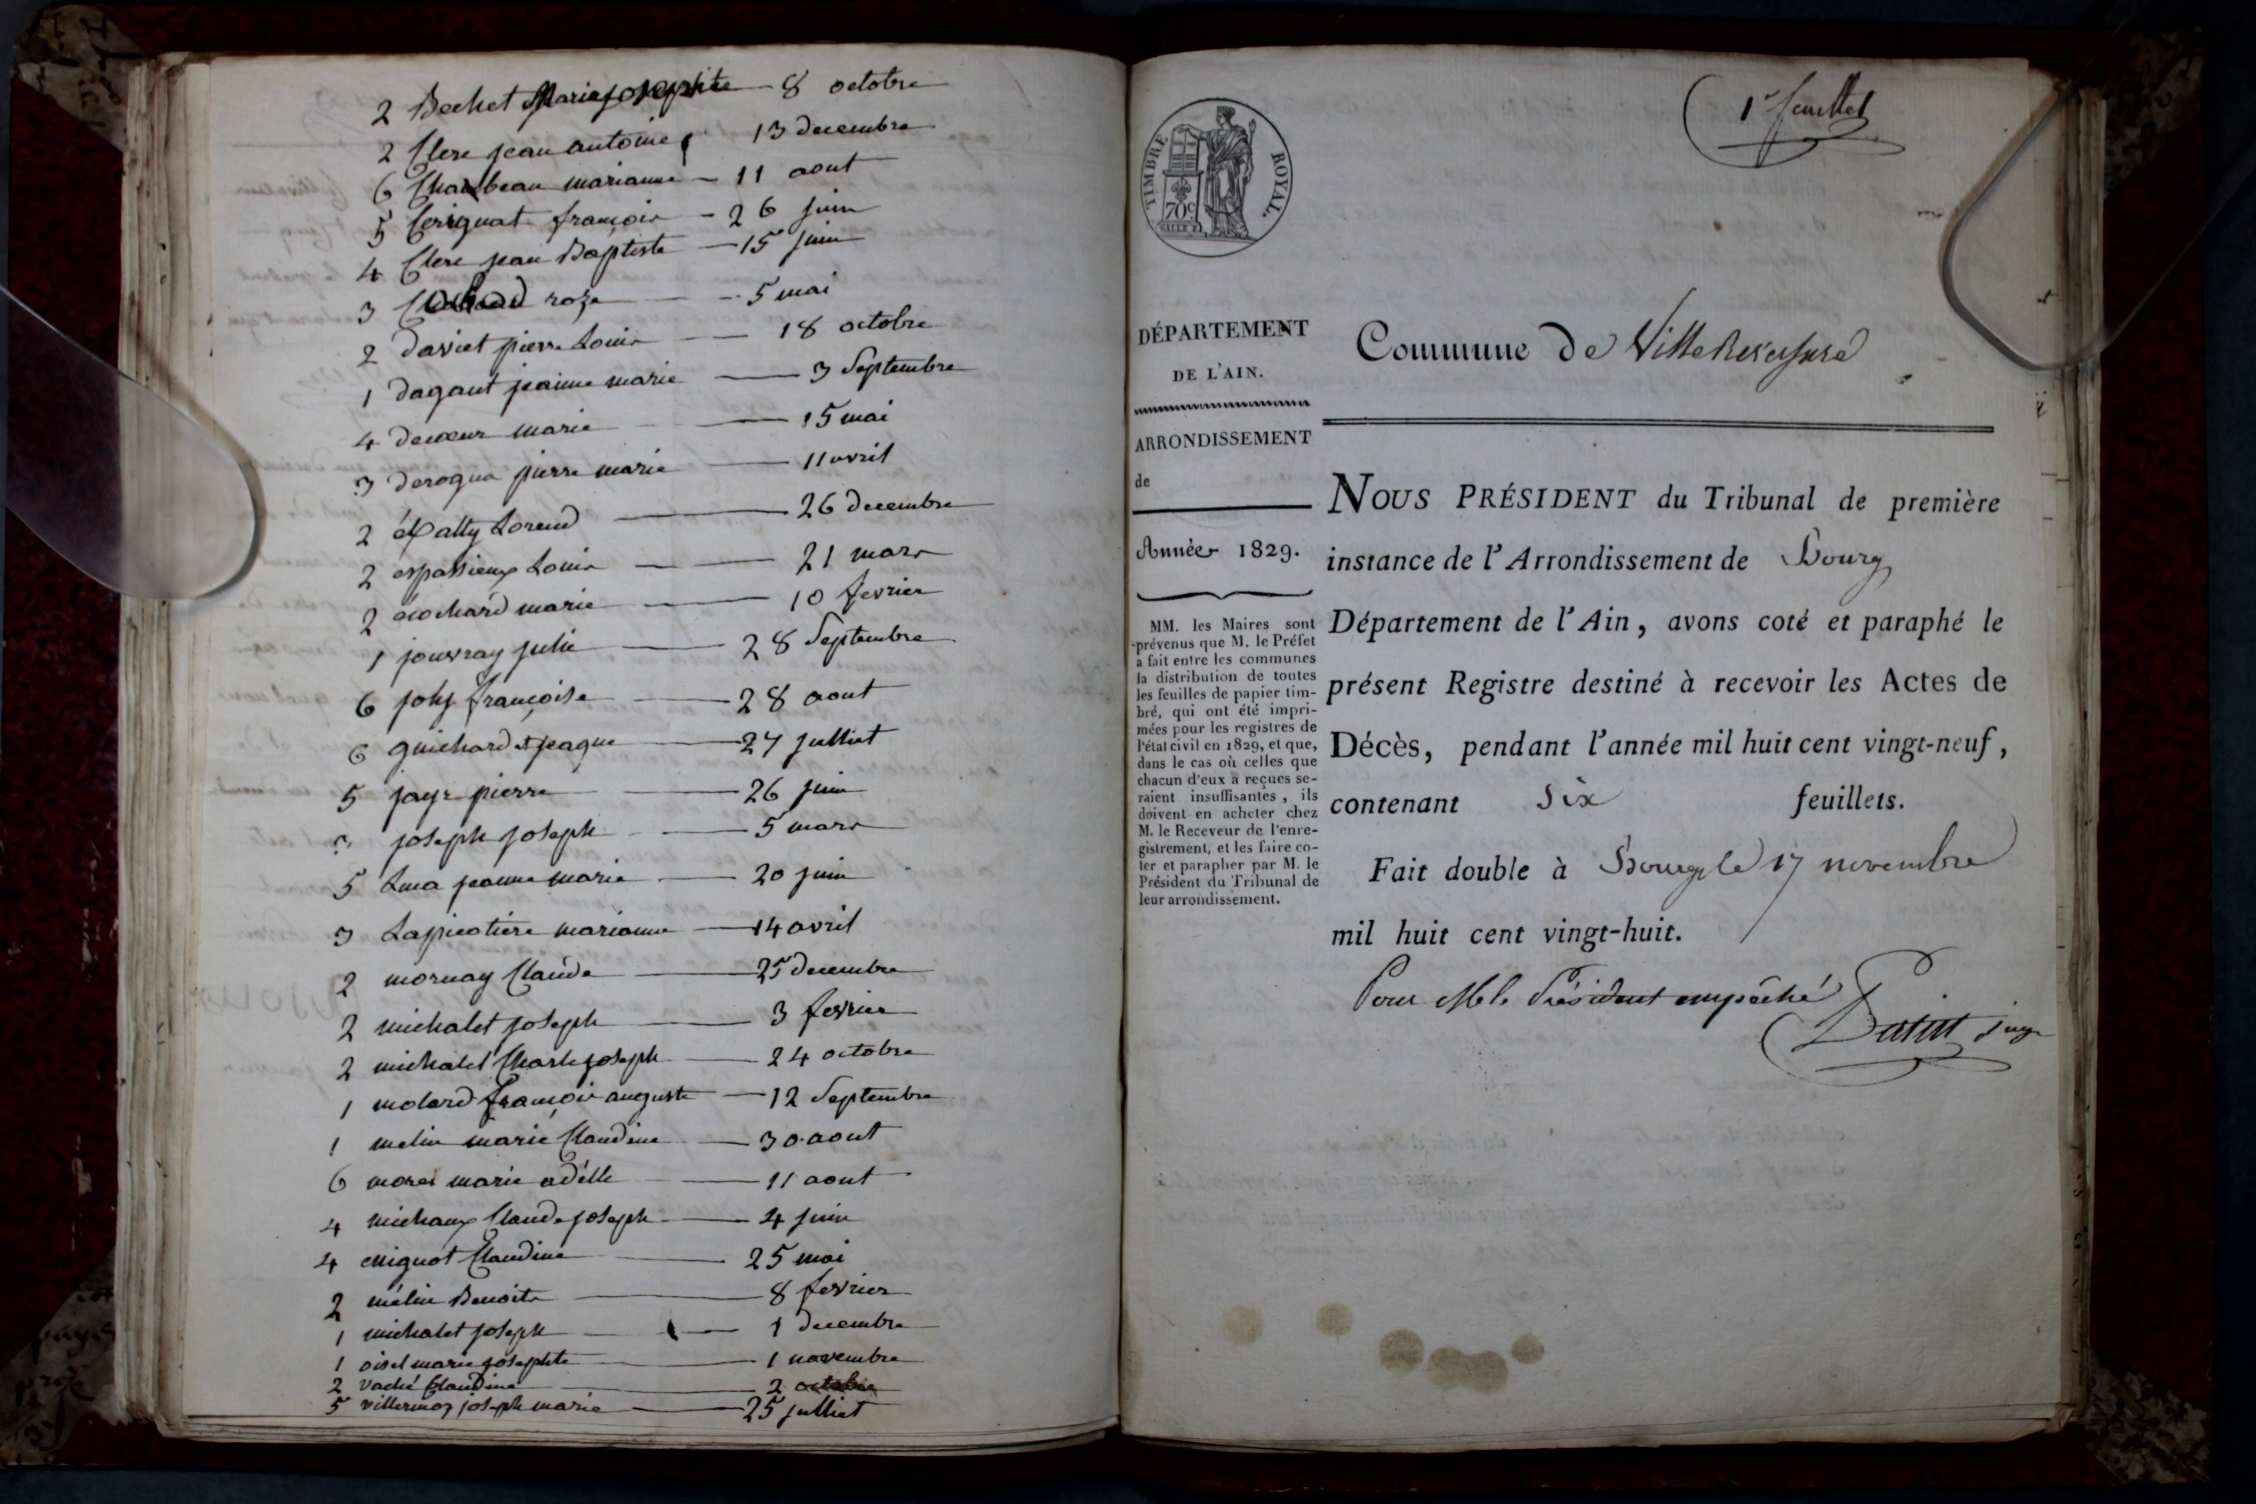 2 Bechet Marie josephte - 8 octobre
2 Clerc jean antoine 13 decembre
6 Chambeau marianne - 11 aout
5 Cerignat françois - 26 juin
4 Clerc jean Baptiste - 15 juin
3 roze - 5 mai
2 daviet pierre Louis - 18 octobre
1 dagaut jeanne marie - 3 Septembre
4 marie - 15 mai
3 pierre marie - 11 avril
2 26 decembre
2 espassieux Louis - 21 mars
2 écochard marie - 10 fevrier
1 jouvray julie - 28 Septembre
6 joly françoise - 28 aout
6 guichard jaque - 27 julliet
5 jayr pierre - 26 juin
3 joseph joseph - 5 mars
5 jeanne marie - 20 juin
3 Lapicotiere marianne - 14 avril
2 mornay Claude - 25 decembre
2 michalet joseph - 3 fevrier
2 michalet Charle joseph - 24 octobre
1 molard françois auguste - 12 Septembre
1 melin marie Claudine - 30 aout
6 morel marie adélle - 11 aout
4 michaux Claude joseph - 4 juin
4 mignot Claudine - 25 mai
2 mélin Benoite - 8 fevrier
1 michalet joseph - 1 decembre
1 oisel marie josephte - 1 novembre
2 vaché Claudine - 2 octobre
5 villermoz joseph marie - 25 julliet
1er feuillet
TIMBRE ROYAL.
70c
DÉPARTEMENT
DE L'AIN.
ARRONDISSEMENT
de
Année 1829.
MM. les Maires sont
prévenus que M. le Préfet
a fait entre les communes
la distribution de toutes
les feuilles de papier tim-
bré, qui ont été impri-
mées pour les registres de
l'état civil en 1829, et que,
dans le cas où celles que
chacun d'eux a reçues se-
raient insuffisantes, ils
doivent en acheter chez
M. le Receveur de l'enre-
gistrement, et les faire co-
ter et parapher par M. le
Président du Tribunal de
leur arrondissement.
Commune de Villereversure
NOUS PRÉSIDENT du Tribunal de première
instance de l'Arrondissement de Bourg
Département de l'Ain, avons coté et paraphé le
présent Registre destiné à recevoir les Actes de
Décès, pendant l'année mil huit cent vingt-neuf,
contenant Six feuillets.
Fait double à Bourg le 17 novembre
mil huit cent vingt-huit.
Pour M. le Président empêché
juge